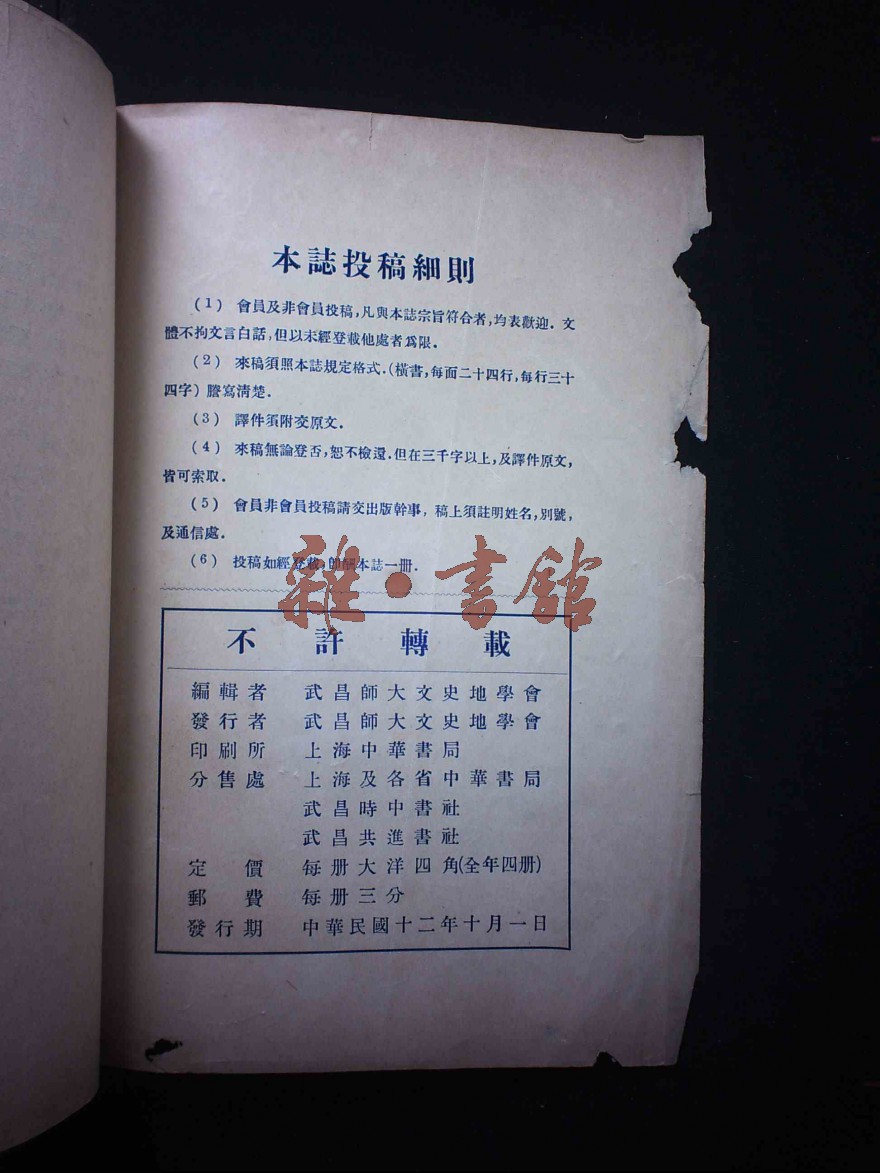 本誌投稿細則
(1) 會員及非會員投稿,凡與本誌宗旨符合者,均表歡迎.文
體不拘文言白話,但以未經登載他處者爲限.
(2) 來稿須照本誌規定格式.(橫書,每面二十四行,每行三十
四字)謄寫淸楚.
(3) 譯件須附交原文.
(4) 來稿無論登否,恕不檢還.但在三千字以上,及譯件原文,
皆可索取.
(5) 會員非會員投稿請交出版幹事,稿上須註明姓名,別號,
及通信處.
(6) 投稿如經登載,卽酬本誌一冊.
雜•書館
不許轉載
編輯者 武昌師大文史地學會
發行者 武昌師大文史地學會
印刷所 上海中華書局
分售處 上海及各省中華書局
武昌時中書社
武昌共進書社
定價 每册大洋四角(全年四册)
郵費 每册三分
發行期 中華民國十二年十月一日